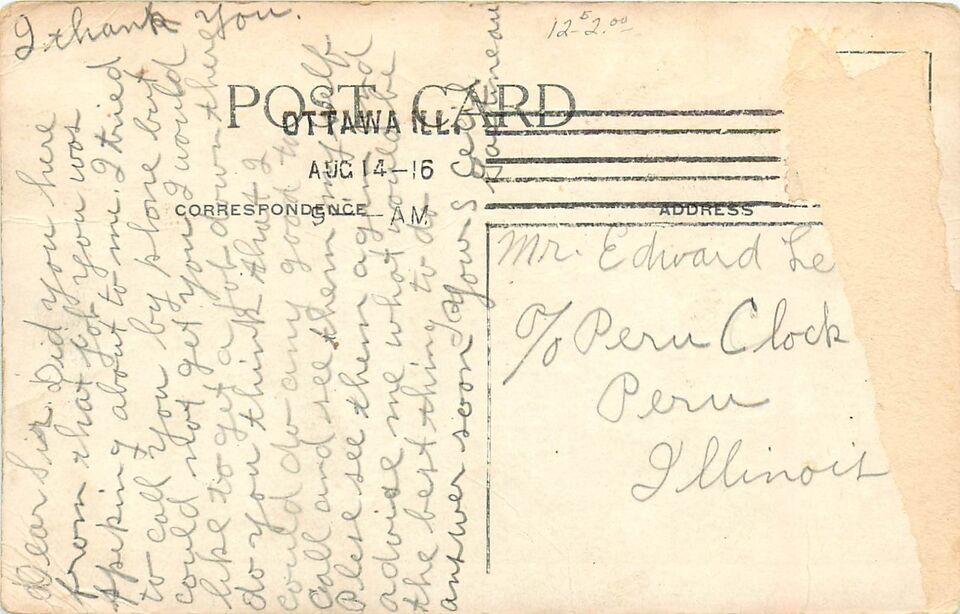 12-5 2.00
POST CARD
OTTAWA ILL.
AUG 14-16
5 - AM
CORRESPONDENCE
ADDRESS
Dear Sir. Did you here
from that job you was
speking about to me. I tried
to call you by phone but
could not get you. I would
like to get a job down there
do you think that I
could do any good to
call and see them myself
Plese see them again and
advise me what would be
the best thing to do
answer soon Yours
I thank you.
Mr. Edward Le
c/o Peru Clock
Peru
Illinois